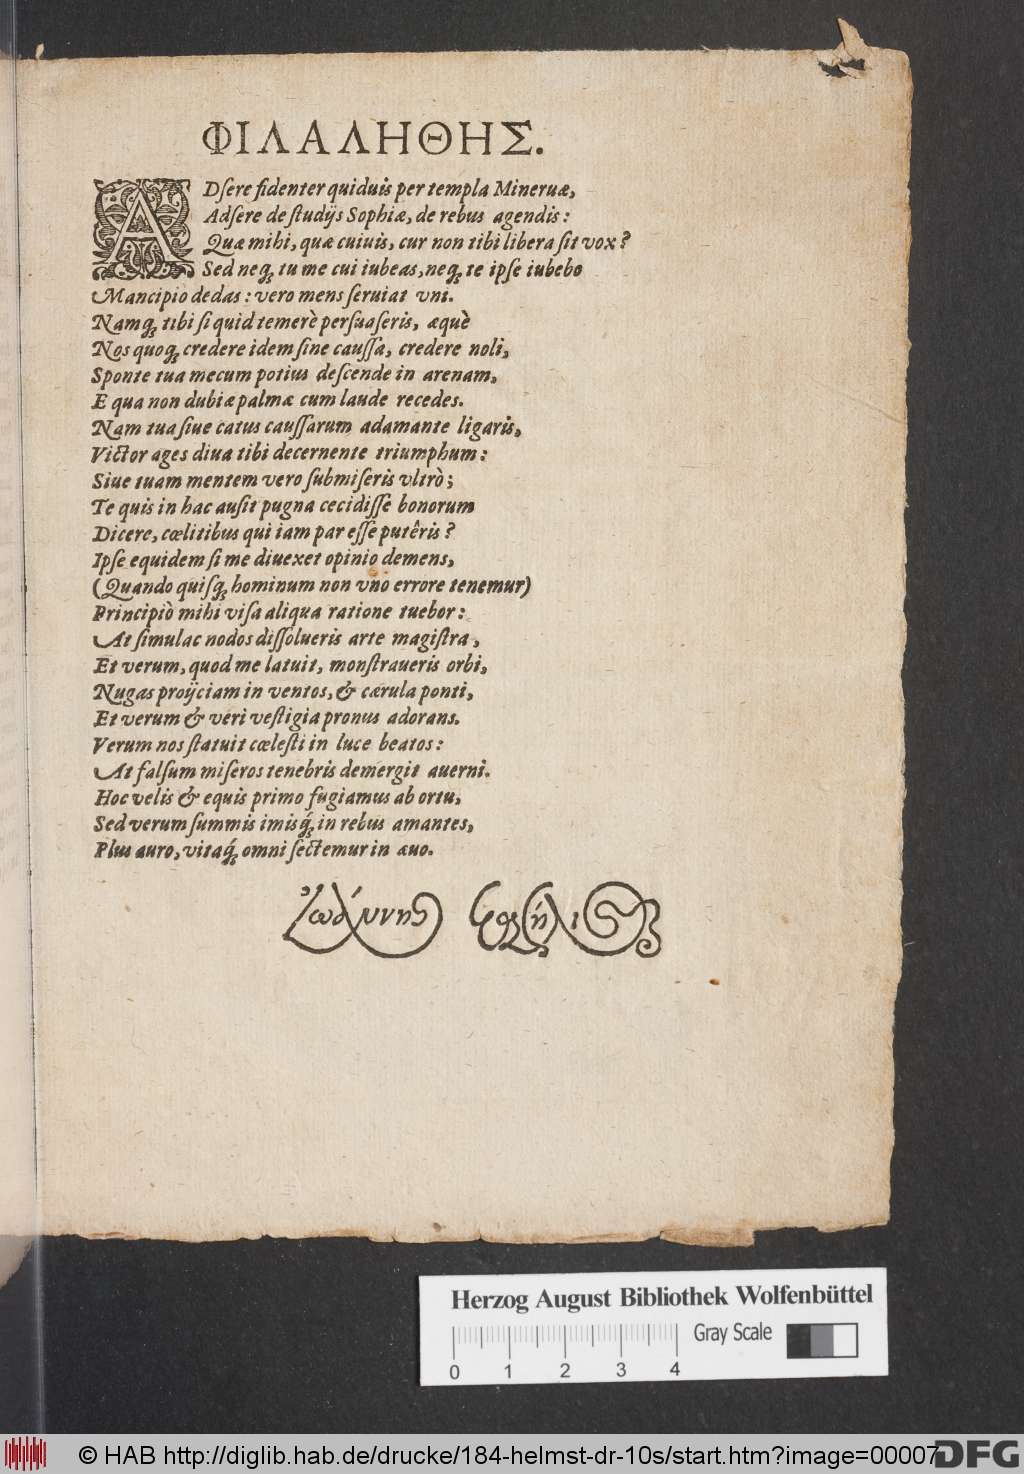 ΦΙΛΑΛΗΘΗΣ.
ADſere fidenter quiduis per templa Mineruæ,
Adſere de ſtudijs Sophiæ, de rebus agendis:
Quæ mihi, quæ cuiuis, cur non tibi libera ſit vox?
Sed neq́; tu me cui iubeas, neq́; te ipſe iubebo
Mancipio dedas: vero mens ſeruiat vni.
Namq́; tibi ſi quid temerè perſuaſeris, æquè
Nos quoq́; credere idem ſine cauſſa, credere noli,
Sponte tua mecum potius deſcende in arenam,
E qua non dubiæ palmæ cum laude recedes.
Nam tua ſiue catus cauſſarum adamante ligaris,
Victor ages diua tibi decernente triumphum:
Siue tuam mentem vero ſubmiſeris vltrò;
Te quis in hac auſit pugna cecidiſſe bonorum
Dicere, cœlitibus qui iam par eſſe putêris?
Ipſe equidem ſi me diuexet opinio demens,
(Quando quiſq́; hominum non vno errore tenemur)
Principiò mihi viſa aliqua ratione tuebor:
At ſimulac nodos diſſolueris arte magiſtra,
Et verum, quod me latuit, monſtraueris orbi,
Nugas proijciam in ventos, & cærula ponti,
Et verum & veri veſtigia pronus adorans.
Verum nos ſtatuit cœleſti in luce beatos:
At falſum miſeros tenebris demergit auerni.
Hoc velis & equis primo fugiamus ab ortu,
Sed verum ſummis imisq́; in rebus amantes,
Plus auro, vitaq́; omni ſectemur in æuo.
Ἰωάννης
Herzog August Bibliothek Wolfenbüttel
Gray Scale
0 1 2 3 4
© HAB http://diglib.hab.de/drucke/184-helmst-dr-10s/start.htm?image=00007
DFG